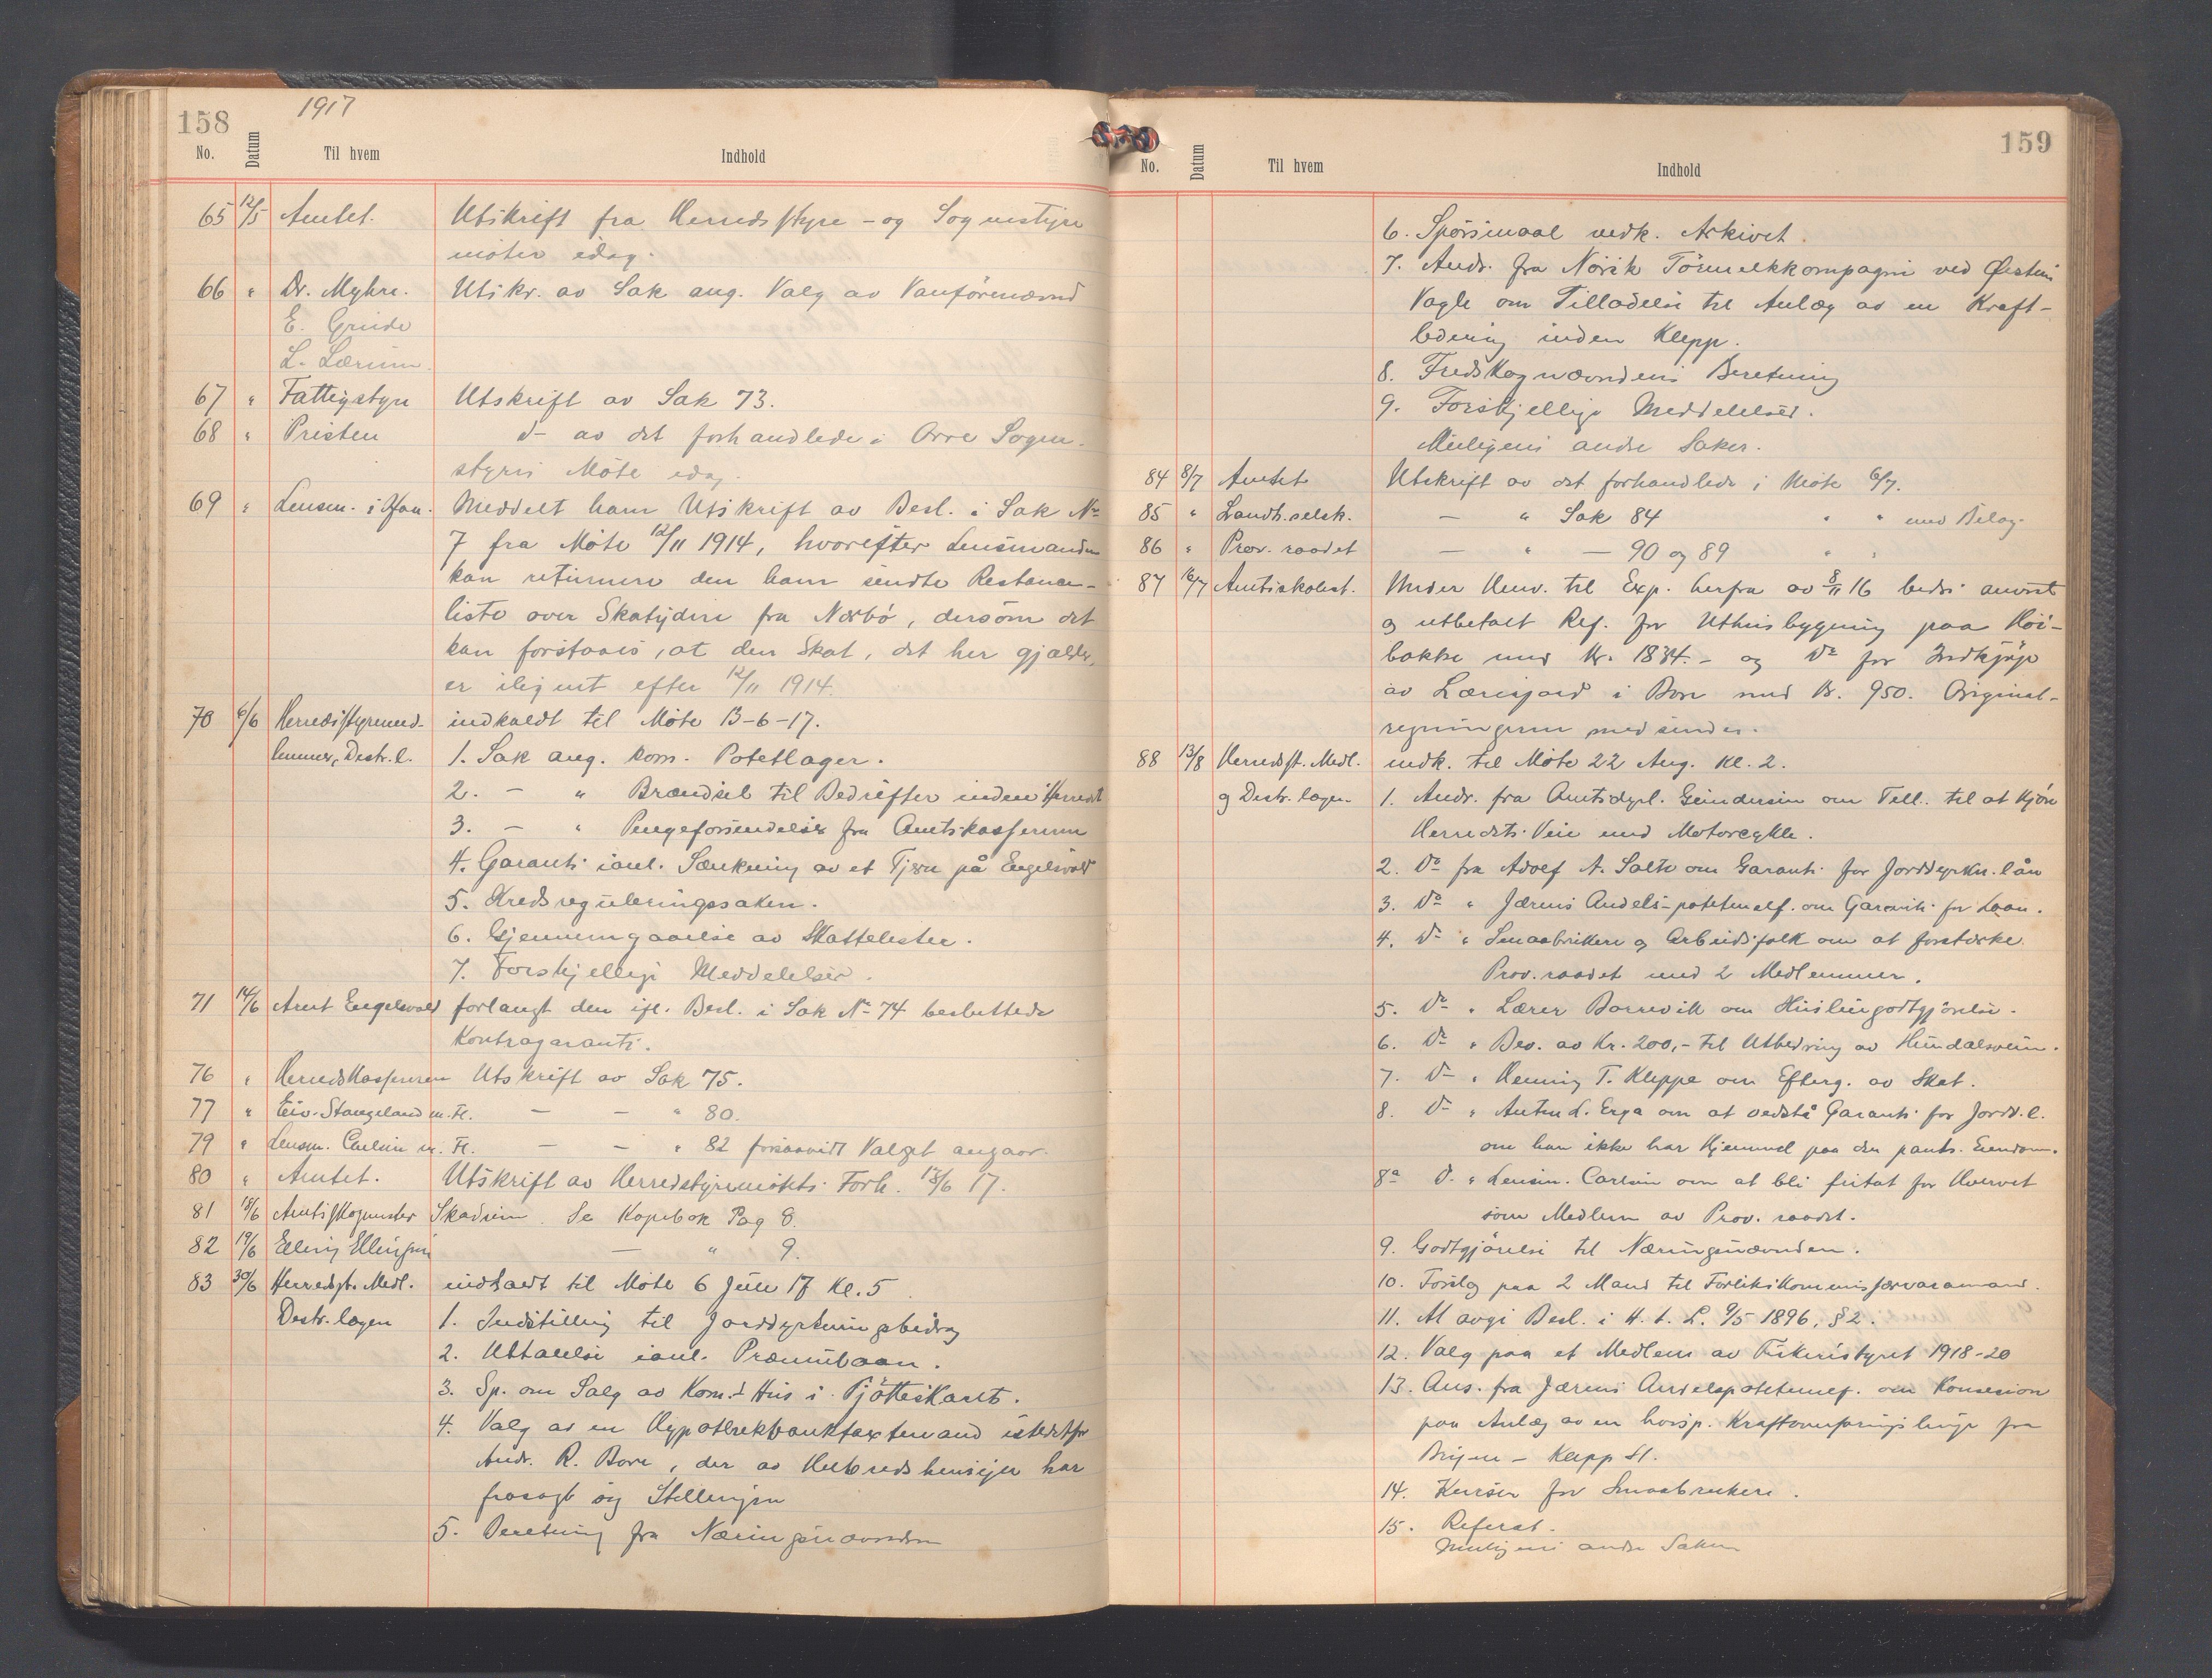 158 1917
No. Datum Til hvem Indhold
65 12/5 Amtet. Utskrift fra Herredsstyre - og Sognestyre
møter idag.
66 " Dr. Myhre. Utskr. av Sak ang. Valg av Vanförenævnd
E. Grude
L. Lærum.
67 " Fattigstyre Utskrift av Sak 73.
68 " Presten d- av det forhandlede i Orre Sogne-
styres Möte idag.
69 " Lensm. i Haa. Meddelt ham Utskrift av Besl. i Sak No
7 fra Möte 12/11 1914, hvorefter Lensmanden
kan returnere den ham sendte Restance-
liste over Skatydere fra Nærbö, dersom det
kan forstaaes, at den Skat, det her gjælder,
er ilignet efter 12/11 1914.
70 6/6 Herredsstyremed- indkaldt til Möte 13-6-17.
lemmer, Destr. l. 1. Sak ang. kom. Potetlager.
2. - " Brændsel til Bedrifter inden Herredet
3. - " Pengeforsendelser fra Amtskassereren
4. Garanti ianl. Sænkning av et Tjern på Engelsvold
5. Kredsreguleringssaken.
6. Gjennemgaaelse av Skattelister.
7. Forskjellige Meddelelser.
71 14/6 Arnt Engelsvold forlangt den ifl. Besl. i Sak No 74 besluttede
Kontragaranti.
76 " Herredskassereren Utskrift av Sak 75.
77 " Eiv. Stangeland m. Fl. - - " 80.
79 " Lensm. Carlsen m. Fl. - - " 82 forsaavidt Valget angaar.
80 " Amtet. Utskrift av Herredstyremötets Forh. 13/6 17.
81 18/6 Amtsskogmester Skadsem. Se Kopibok Pag 8.
82 19/6 Elling Ellingsen - " 9.
83 30/6 Herredsst. Medl. indkaldt til Möte 6 Juli 17 Kl. 5.
Destr. lagen 1. Indstilling til Jorddyrkningsbidrag
2. Uttalelse ianl. Præmielaan.
3. Sp. om Salg av Kom.s Hus i Pjötteskaret.
4. Valg av en Hypothekbanktaxtmand istedetfor
Andr. R. Bore, der av Helbredshensyn har
frasagt sig Stillingen
5. Beretning fra Næringsnævnden
159
No. Datum Til hvem Indhold
6. Spörsmaal vedk. Arkivet.
7. Andr. fra Norsk Törmelkkompagni ved Østein
Vagle om Tilladelse til Anlæg av en Kraft-
ledning inden Klepp.
8. Fredskognævndens Beretning
9. Forskjellige Meddelelser.
Muligens andre Saker.
84 8/7 Amtet Utskrift av det forhandlede i Möte 6/7.
85 " Landh. selsk. - " Sak 84 " " med Bilag.
86 " Prov. raadet - " - 90 og 89 " "
87 16/7 Amtsskolest. Under Henv. til Exp. herfra av 8/11 16 bedes anvist
og utbetalt Ref. for Uthusbygning paa Höi-
bakke med Kr. 1834.- og Do for Indkjöp
av Lærerjord i Bore med Kr. 950. Original-
regningerne medsendes.
88 13/8 Herredsst. Medl. indk. til Möte 22 Aug. Kl. 2.
og Destr. lagen. 1. Andr. fra Amtsdyrl. Gundersen om Till. til at kjöre
Herredets Veie med Motorcykle.
2. Do fra Adolf A. Salte om Garanti for Jorddyrkn. lån
3. Do " Jærens Andels-potetmelf. om Garanti for Laan.
4. Do " Smaabrukere og Arbeidsfolk om at forsterke
Prov. raadet med 2 Medlemmer.
5. Do " Lærer Borrevik om Husleiegodtgjörelse.
6. Do " Bev. av Kr. 200,- til Utbedring av Hundalsveien.
7. Do " Henning T. Kleppe om Efterg. av Skat.
8. Do " Anton L. Erga om at vedstå Garanti for Jordd. l.
om han ikke har Hjemmel paa den pants. Eiendom.
8a D. " Lensm. Carlsen om at bli fritat for Hvervet
som Medlem av Prov. raadet.
9. Godtgjörelse til Næringsnævnden.
10. Forslag paa 2 Mand til Forlikskommisjærvaramand.
11. At avgi Besl. i H. t. L. 9/5 1896, § 2.
12. Valg paa et Medlem av Fiskeristyret 1918-20
13. Ans. fra Jærens Andelspotetmelf. om Konsesion
paa Anlæg av en höisp. Kraftoverföringslinje fra
Bryne - Klepp St.
14. Kurser for Smaabrukere.
15. Referat.
Muligens andre Saker